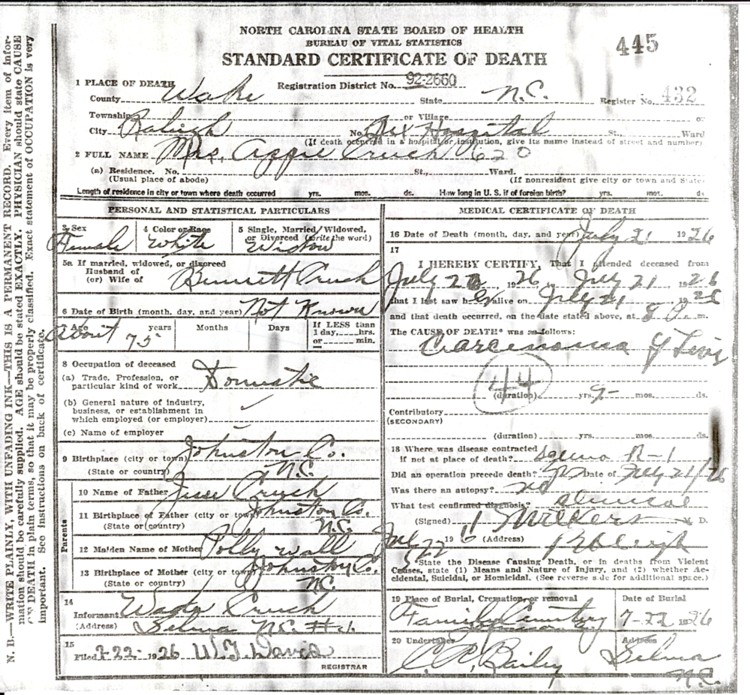 NORTH CAROLINA STATE BOARD OF HEALTH
BUREAU OF VITAL STATISTICS
STANDARD CERTIFICATE OF DEATH
445
1 PLACE OF DEATH
Registration District No. 92-2660
County Wake State N.C. Register No. 432
Township or Village
City Raleigh No. Rex Hospital St., Ward
(If death occurred in a hospital or institution, give its name instead of street and number)
2 FULL NAME Mrs. 620
(a) Residence. No. St., Ward.
(Usual place of abode) (If nonresident give city or town and State)
Length of residence in city or town where death occurred yrs. mos. ds. How long in U. S. if of foreign birth? yrs. mos. ds.
PERSONAL AND STATISTICAL PARTICULARS
3 Sex 4 Color or Race 5 Single, Married, Widowed, or Divorced (write the word)
Female White Widow
5a If married, widowed, or divorced
Husband of
(or) Wife of Bennett
6 Date of Birth (month, day, and year) Not Known
7 Age years Months Days If LESS than
1 day, hrs.
or min.
About 75
8 Occupation of deceased
(a) Trade, Profession, or
particular kind of work Domestic
(b) General nature of industry,
business, or establishment in
which employed (or employer)
(c) Name of employer
9 Birthplace (city or town) Johnston Co.
(State or country) N.C.
Parents
10 Name of Father Jesse
11 Birthplace of Father (city or town) Johnston Co.
(State or country) N.C.
12 Maiden Name of Mother Polly Wall
13 Birthplace of Mother (city or town) Johnston Co.
(State or country) N.C.
14
Informant
(Address) Selma N.C. #1.
15
Filed 7-22-1926 W.G. Davis
REGISTRAR
MEDICAL CERTIFICATE OF DEATH
16 Date of Death (month, day, and year) July 21 1926
17
I HEREBY CERTIFY, That I attended deceased from
July 1926 July 21 1926
that I last saw h alive on July 21 1926
and that death occurred, on the date stated above, at 8 P. m.
The CAUSE OF DEATH* was as follows:
Carcinoma of
44
(duration) yrs. mos. ds.
Contributory
(SECONDARY)
(duration) yrs. mos. ds.
18 Where was disease contracted
if not at place of death? Selma R-1
Did an operation precede death? yes Date of July 21/26
Was there an autopsy? no
What test confirmed diagnosis? clinical
(Signed) M. D.
July 22 1926 (Address) Raleigh
State the Disease Causing Death, or in deaths from Violent
Causes, state (1) Means and Nature of Injury, and (2) whether Ac-
cidental, Suicidal, or Homicidal. (See reverse side for additional space.)
19 Place of Burial, Cremation, or removal Date of Burial
Family Cemetery 7-22 1926
20 Undertaker Address
C.R. Bailey Selma
N.C.
N. B.—WRITE PLAINLY, WITH UNFADING INK—THIS IS A PERMANENT RECORD. Every item of infor-
mation should be carefully supplied. AGE should be stated EXACTLY. PHYSICIAN should state CAUSE
OF DEATH in plain terms, so that it may be properly classified. Exact statement of OCCUPATION is very
important. See instructions on back of certificate.